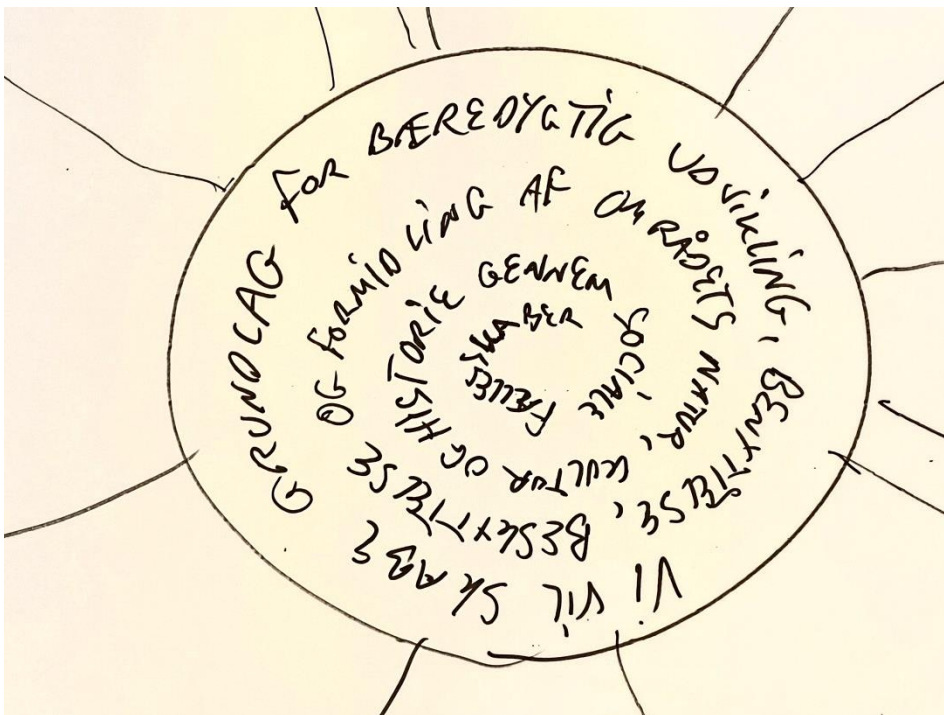 VI VIL SKABE GRUNDLAG FOR BÆREDYGTIG UDVIKLING, BENYTTELSE, BESKYTTELSE OG FORMIDLING AF OMRÅDETS NATUR, KULTUR OG HISTORIE GENNEM SOCIALE FÆLLESSKABER